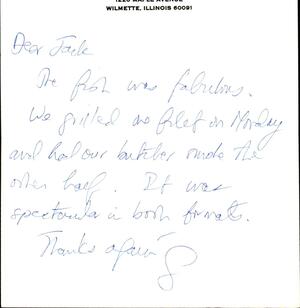 1220 MAPLE AVENUE
WILMETTE, ILLINOIS 60091
Dear Jack
The fish was fabulous.
We grilled one filet on Monday
and had our butcher smoke the
other half. It was
spectacular in both formats.
Thanks again